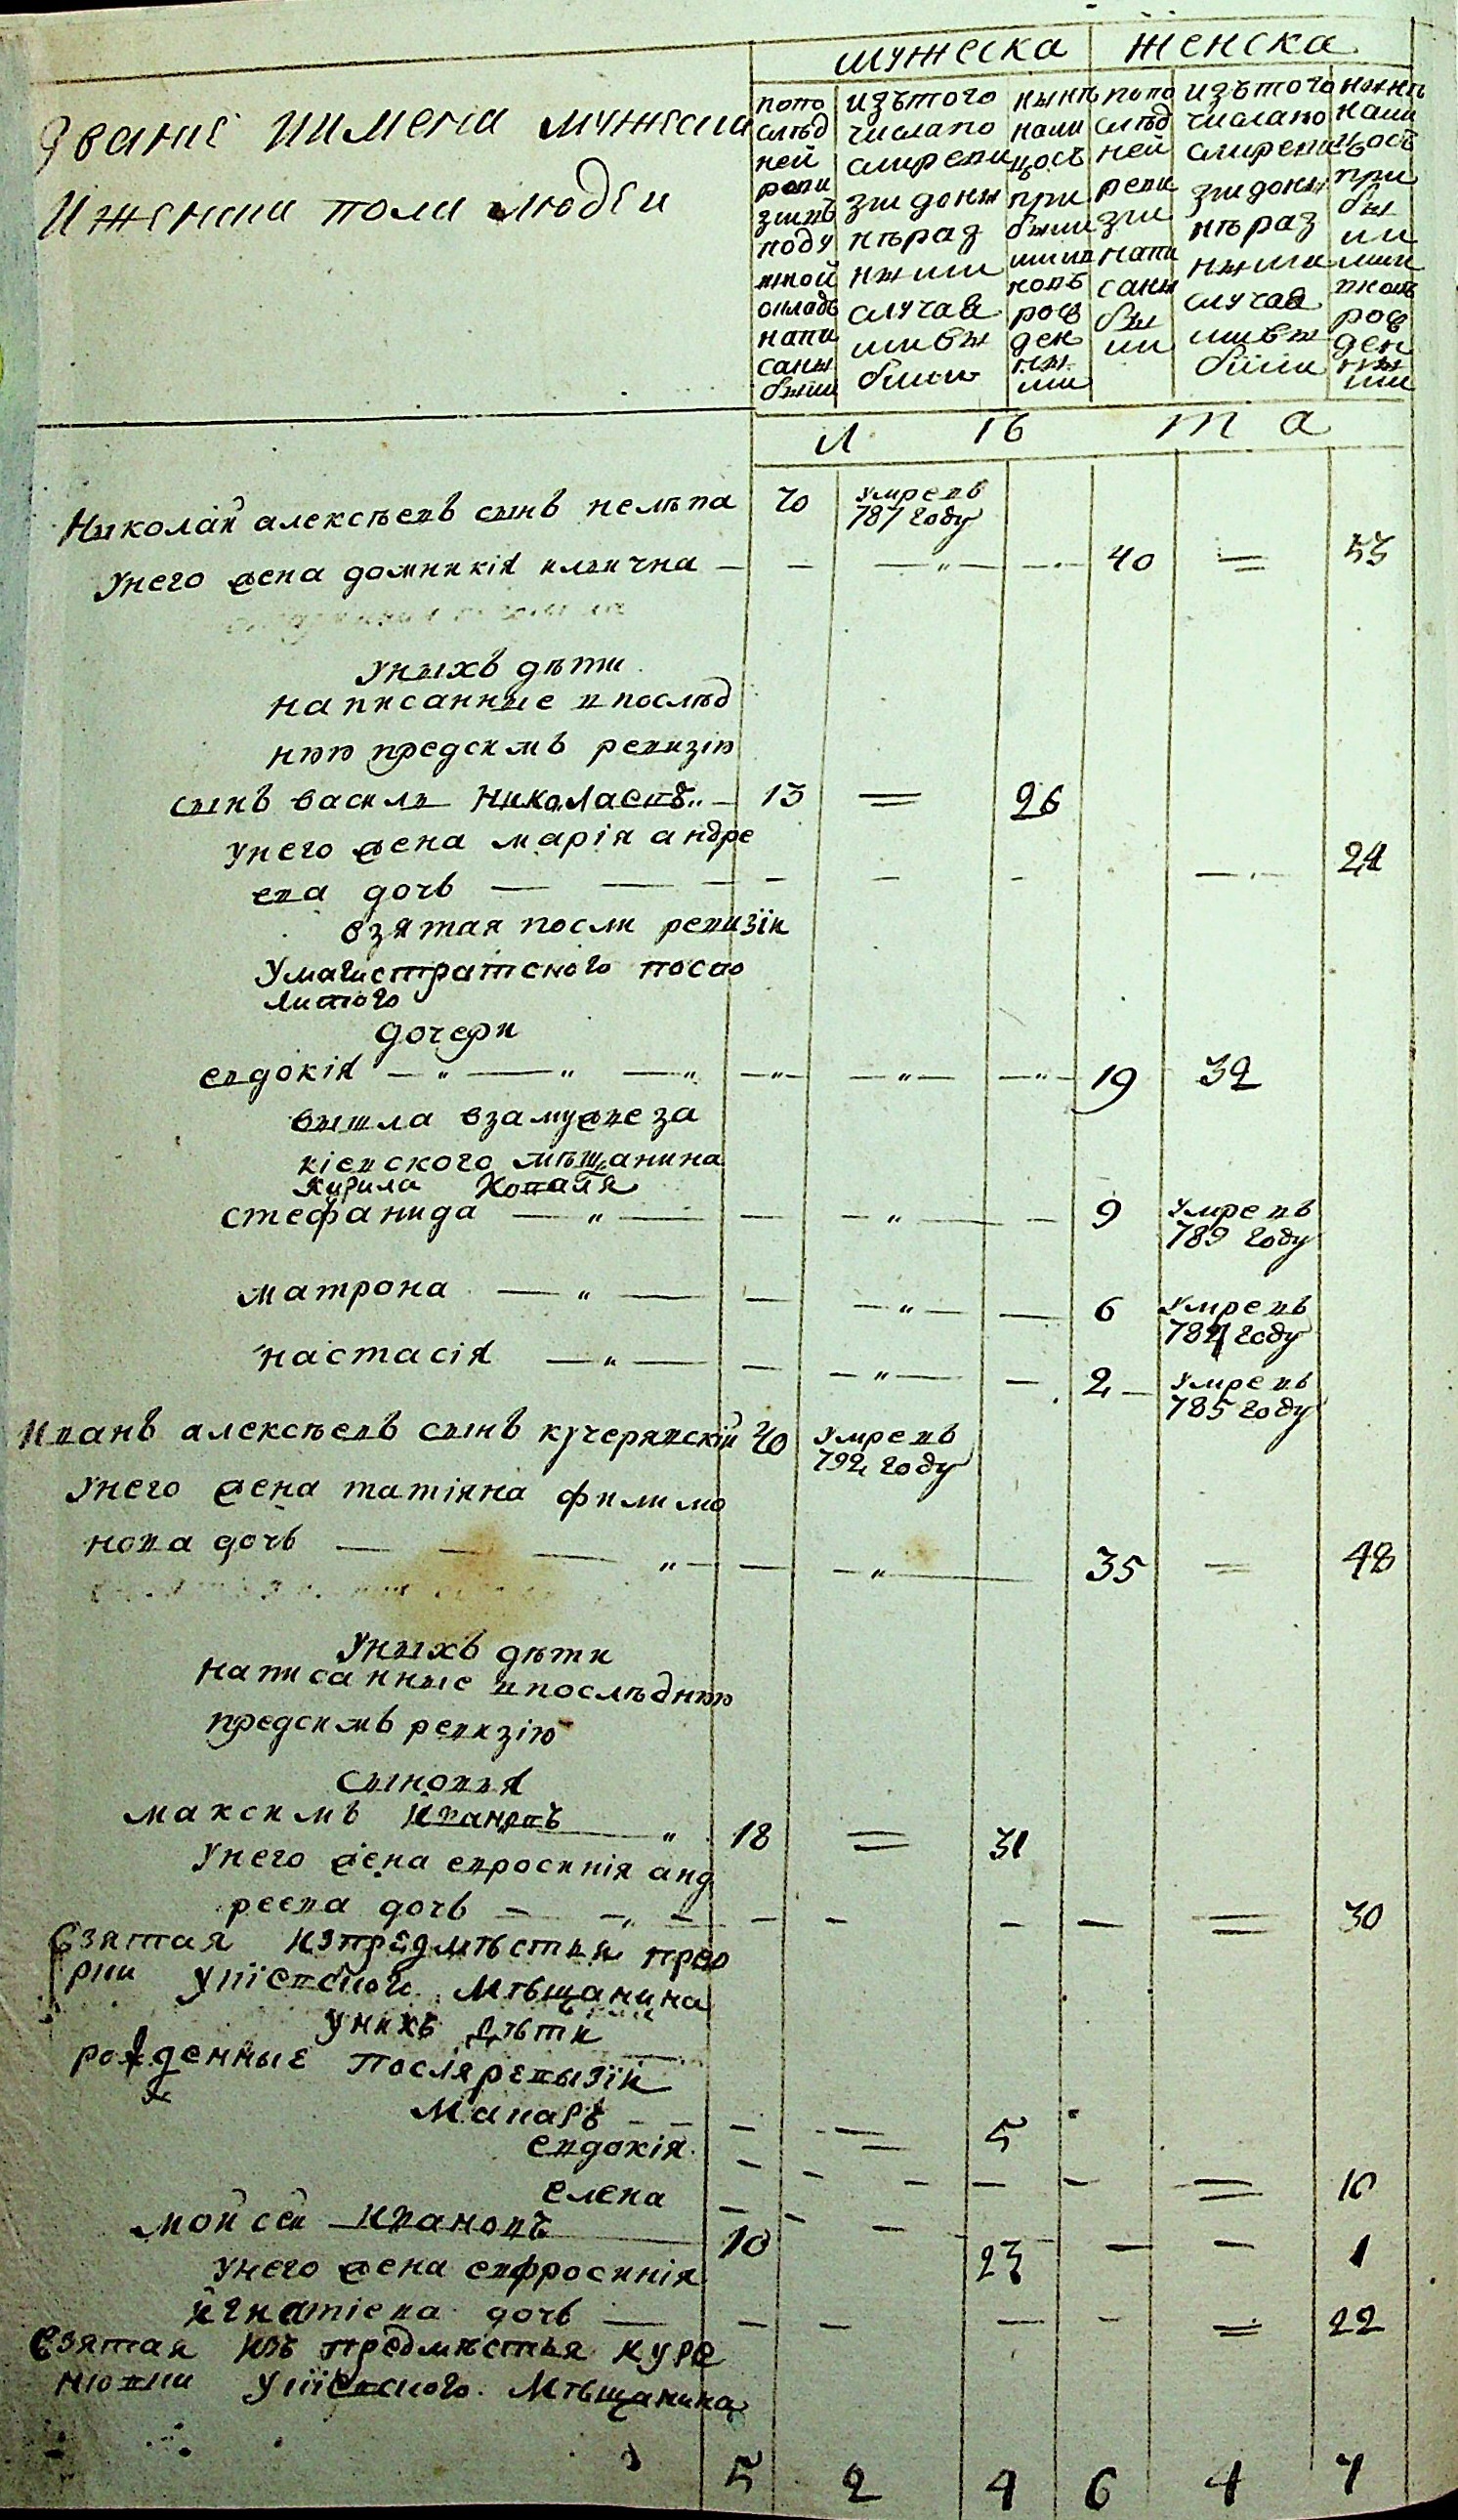 мужеска женска
Званіе иимена мужеска
иженска пола людеи
попо
след
ней
реви
зіивъ
поду
шной
окладъ
напи
саны
были
изътого
числапо
слиреви
зіидоны
нѣраз
ными
случая
мивы
были
нынѣ
нали
цось
при
были
мив
новъ
рож
ден
ны
ми
попо
след
ней
реви
зіи
напи
саны
бы
ли
изътого
числапо
слиреви
зіидоны
нѣраз
ными
случая
мивы
были
нынѣ
нали
цось
при
бы
ли
мив
новъ
рож
ден
ны
ми
л ѣ т а
Николай алексѣевъ сынъ нелѣпа 40 умревъ
787 году
унего жена домникія илична — — — — 40 = 53
уныхъ дѣти
написанные впослѣд
нюю предсимъ ревизію
сынъ василь Николаевъ — 13 = 26
унего жена марія андре
ева дочь — — — — — — — 24
взятая посли ревизіи
умагистратского поспо
литого
дочери
евдокія — — — — — — 19 32
вышла взамужне за
кіевского мѣщанина
Кирила Копайя
стефанида — — — — — 9 умревъ
789 году
матрона — — — — — 6 умревъ
784 году
настасія — — — — — 2 — умревъ
785 году
иванъ алексѣевъ сынъ кучерявскій 40 умревъ
792 году
унего жена татіяна филимо
нова дочь — — — — — 35 = 48
уныхъ дѣти
написанные впослѣднюю
предсимъ ревизію
сыновья
максимъ Ивановъ — 18 = 31
унего жена евросинія анд
реева дочь — — — — — — — = 30
взятая изпредмѣстия прео
рки укіевского мѣщанина
унихъ дѣти
рожденные послѣревызіи
Макаръ — — — = 5
евдокія — — — — — = 10
елена — — — — — 1
мойсей Ивановъ 10 23
унего жена ефросинія
игнатіева дочь — — — — — = 22
взятая изъ предмѣстья куре
ніовки укіевского мѣщанина
5 2 4 6 4 7